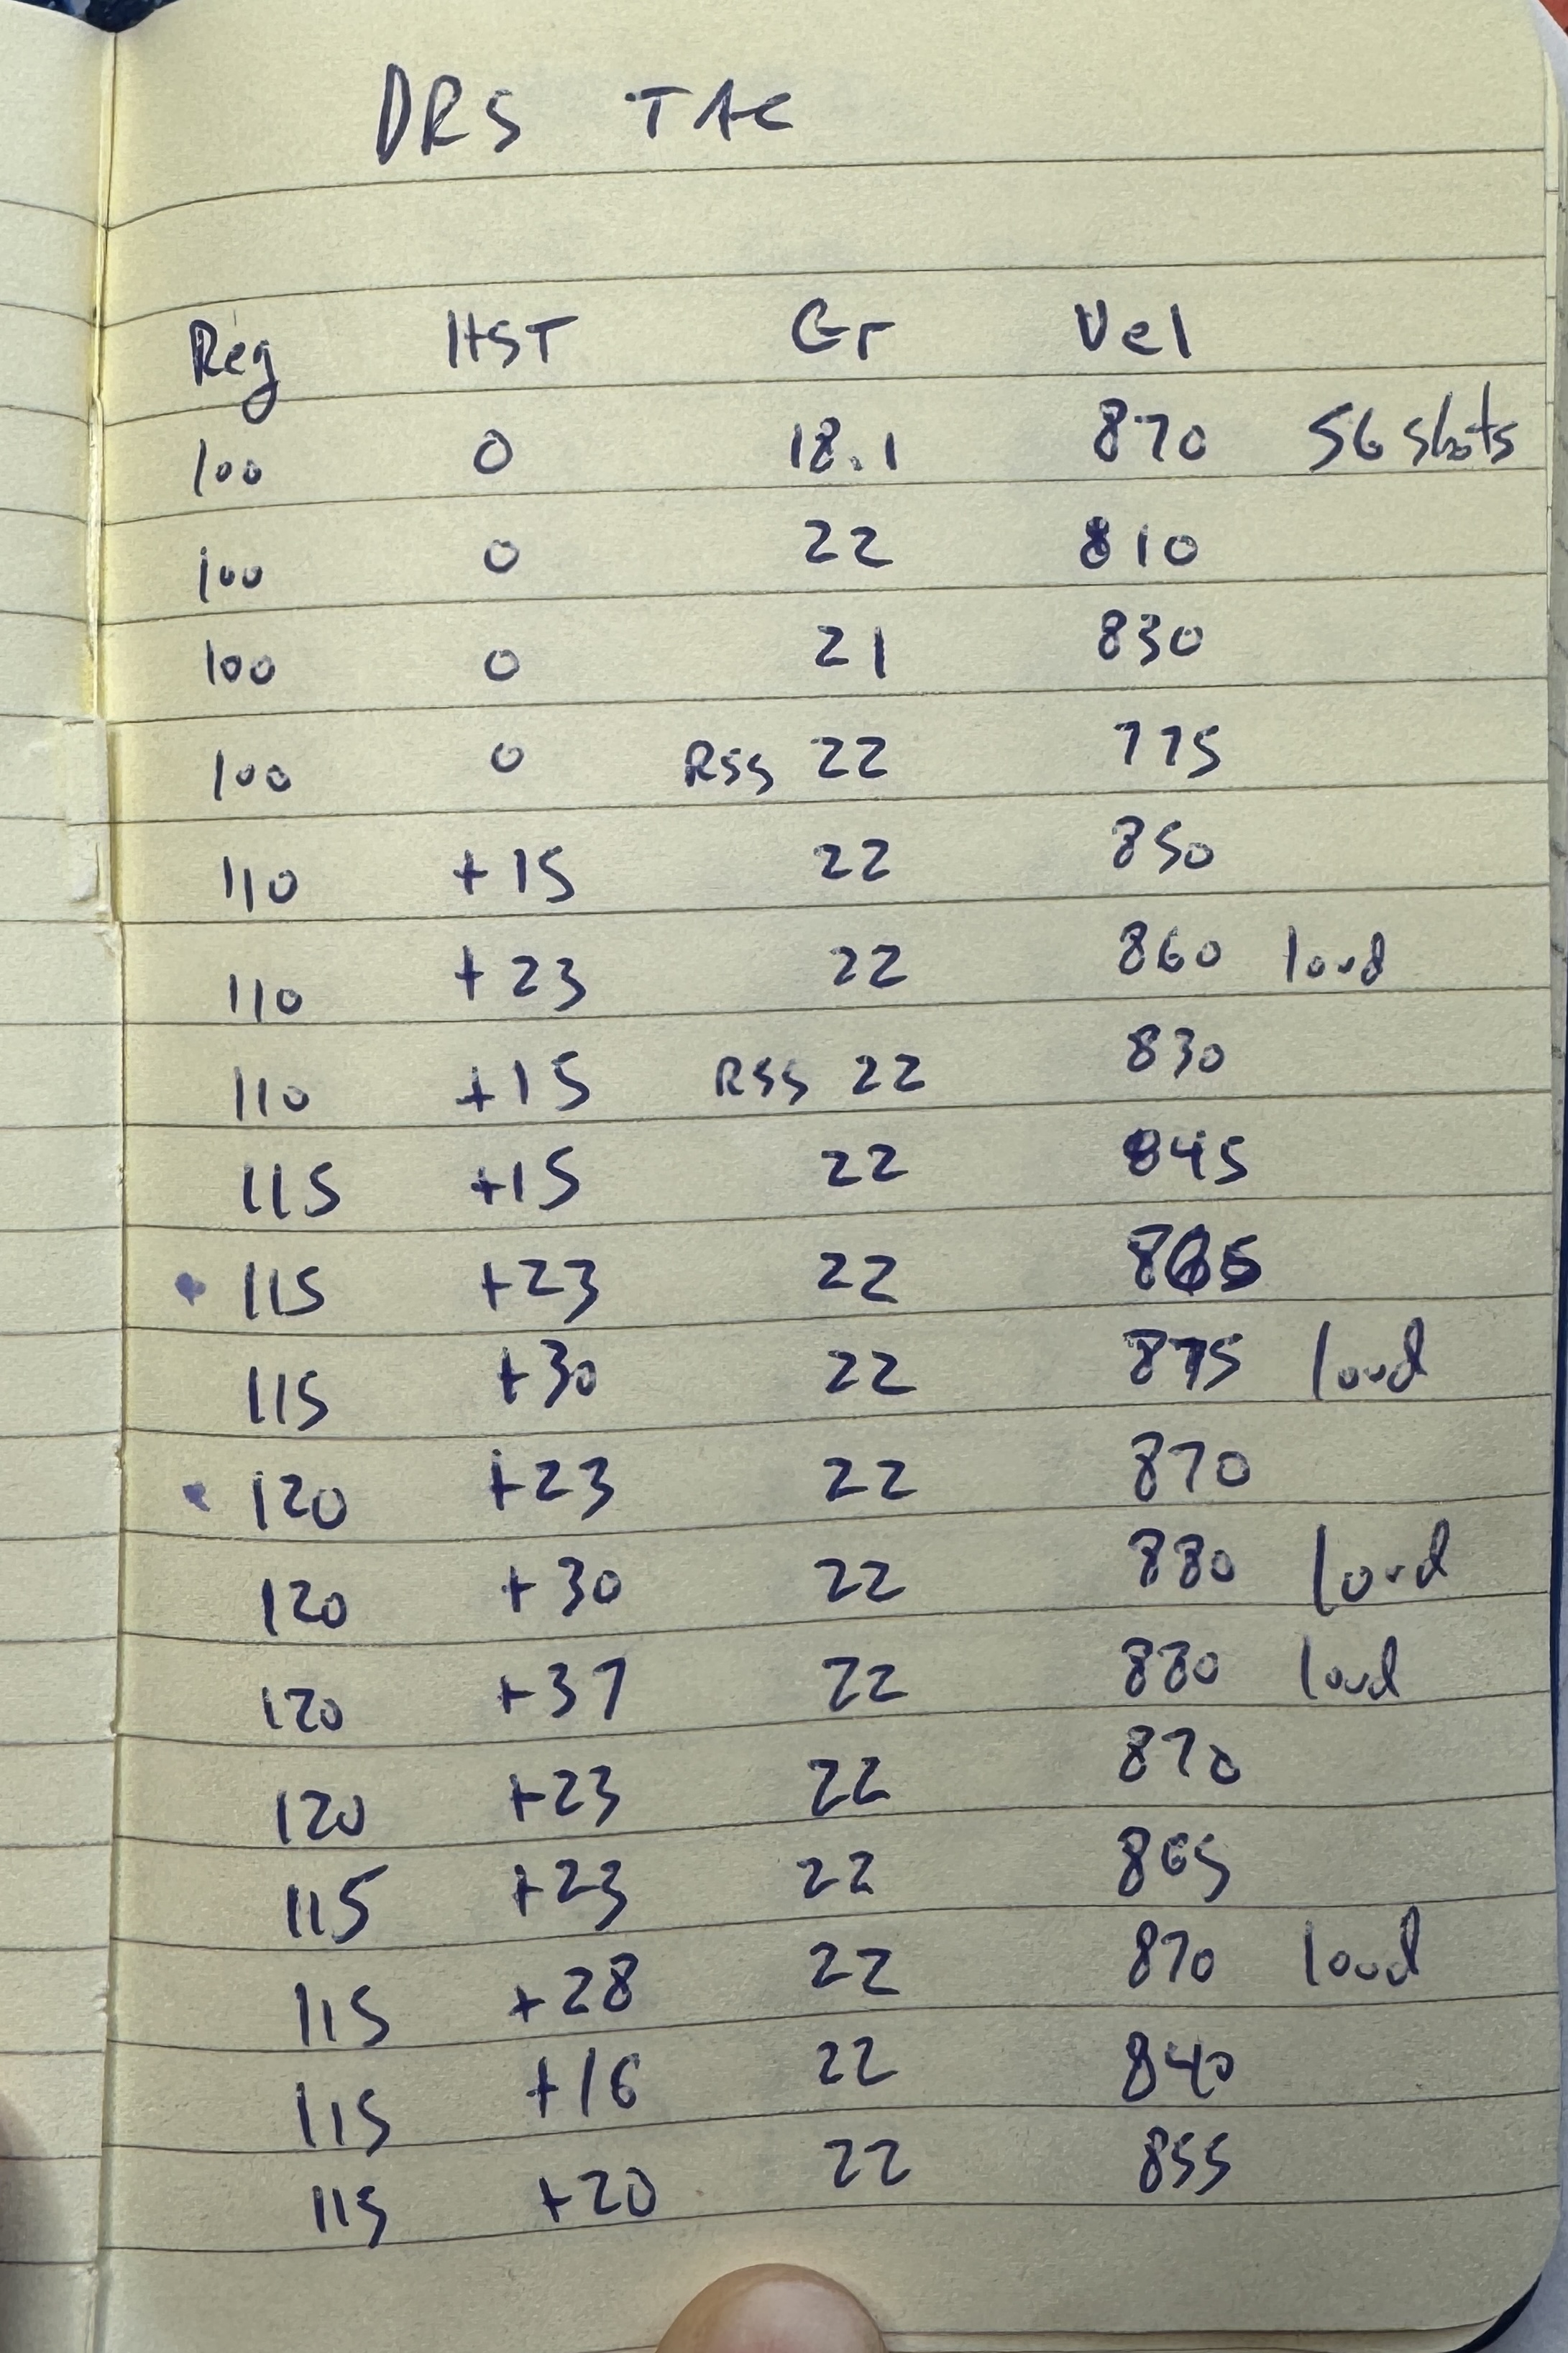 DRS TAC
Reg HST Gr Vel
100 0 18.1 870 56 shots
100 0 22 810
100 0 21 830
100 0 RSS 22 775
110 +15 22 850
110 +23 22 860 loud
110 +15 RSS 22 830
115 +15 22 845
• 115 +23 22 865
115 +30 22 875 loud
• 120 +23 22 870
120 +30 22 880 loud
120 +37 22 880 loud
120 +23 22 870
115 +23 22 865
115 +28 22 870 loud
115 +16 22 840
115 +20 22 855